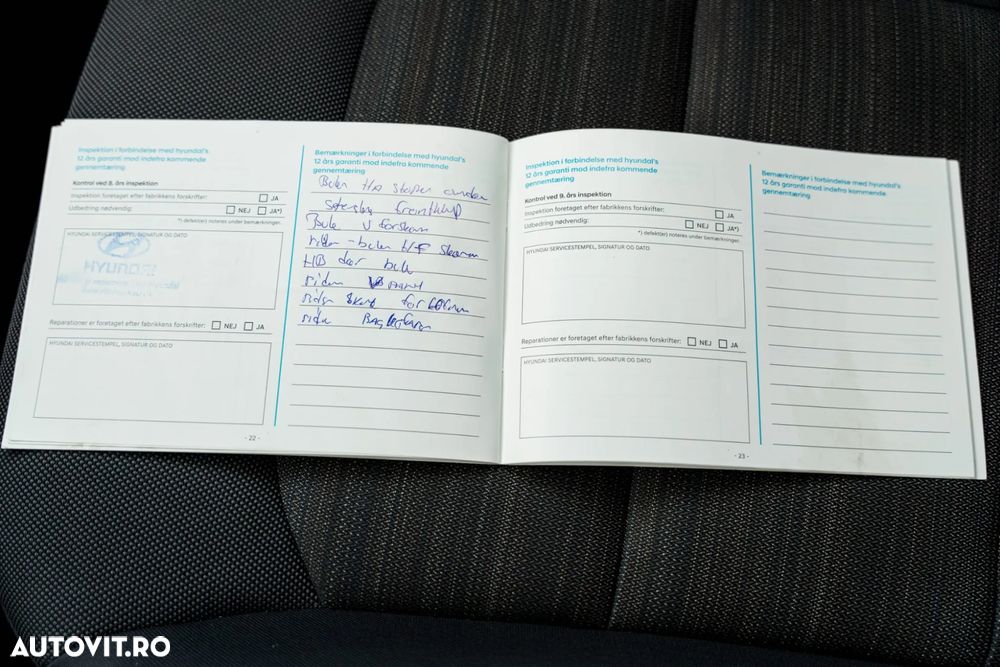 Inspektion i forbindelse med hyundai's
12 års garanti mod indefra kommende
gennemtæring
Kontrol ved 8. års inspektion
Inspektion foretaget efter fabrikkens forskrifter: JA
Udbedring nødvendig: NEJ JA*)
*) defekt(er) noteres under bemærkninger.
HYUNDAI SERVICESTEMPEL, SIGNATUR OG DATO
HYUNDAI
Reparationer er foretaget efter fabrikkens forskrifter: NEJ JA
HYUNDAI SERVICESTEMPEL, SIGNATUR OG DATO
- 22 -
Bemærkninger i forbindelse med hyundai's
12 års garanti mod indefra kommende
gennemtæring
Buler
Bule V forskærm
H/F
HB dør bule
Inspektion i forbindelse med hyundai's
12 års garanti mod indefra kommende
gennemtæring
Kontrol ved 9. års inspektion
Inspektion foretaget efter fabrikkens forskrifter: JA
Udbedring nødvendig: NEJ JA*)
*) defekt(er) noteres under bemærkninger.
HYUNDAI SERVICESTEMPEL, SIGNATUR OG DATO
Reparationer er foretaget efter fabrikkens forskrifter: NEJ JA
HYUNDAI SERVICESTEMPEL, SIGNATUR OG DATO
- 23 -
Bemærkninger i forbindelse med hyundai's
12 års garanti mod indefra kommende
gennemtæring
AUTOVIT.RO